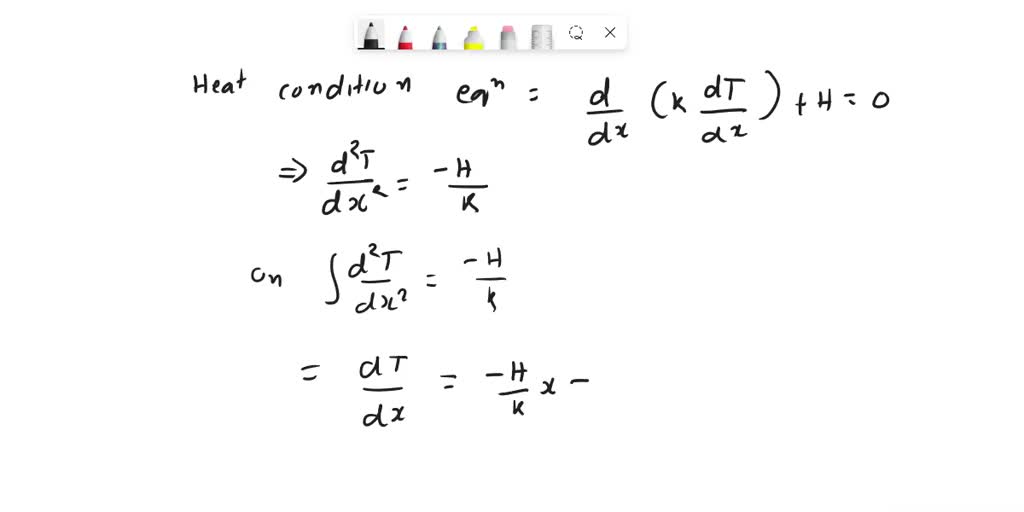 Heat condition eqⁿ = d/dx (K dT/dx) + H = 0
⇒ d²T/dx² = -H/K
on ∫ d²T/dx² = -H/K
= dT/dx = -H/K x -